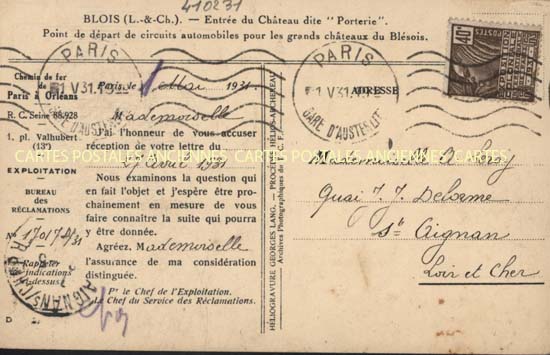 410231
BLOIS (L.-&-Ch.). — Entrée du Château dite "Porterie".
Point de départ de circuits automobiles pour les grands châteaux du Blésois.
PARIS
GARE D'AUSTERLITZ
Chemin de fer
de
Paris à Orléans
R. C. Seine 88.928
1. pl. Valhubert
(13e)
EXPLOITATION
BUREAU
des
RÉCLAMATIONS
N°
Rappeler
indications
ci-dessus
Paris le 1 Mai 1931
Mademoiselle
J'ai l'honneur de vous accuser
réception de votre lettre du
Avril 1931
Nous examinons la question qui
en fait l'objet et j'espère être pro-
chainement en mesure de vous
faire connaître la suite qui pourra
y être donnée.
Agréez, Mademoiselle
l'assurance de ma considération
distinguée.
Pr le Chef de l'Exploitation.
Le Chef du Service des Réclamations.
D
HÉLIOGRAVURE GEORGES LANG. — PROCÉDÉ HÉLIO-ARCHEREAU
Archives Photographiques de
PARIS
GARE D'AUSTERLITZ
40c
POSTES
ADRESSE
Mademoiselle
Quai J. J. Delorme
St Aignan
Loir et Cher
CARTES POSTALES ANCIENNES CARTES POSTALES ANCIENNES CARTES POSTALES ANCIENNES